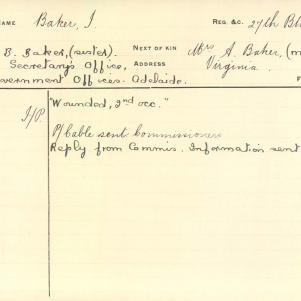 NAME Baker, I REG &C. 27th B
B. Baker, (sister). NEXT OF KIN Mrs A. Baker, (m
Secretary's Office, ADDRESS Virginia.
overnment Offices. Adelaide. F
I/P "Wounded, 2nd occ."
P/Cable sent Commissioners
Reply from Commis. Information sent